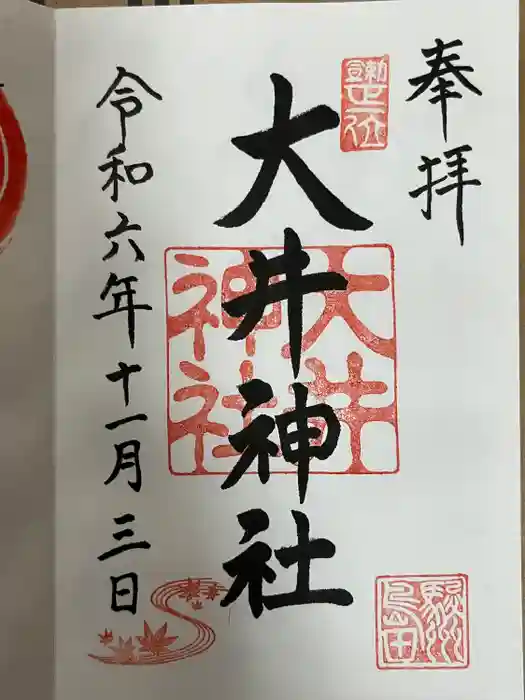 奉拝
大井神社
令和六年十一月三日
大井神社
駿州島田